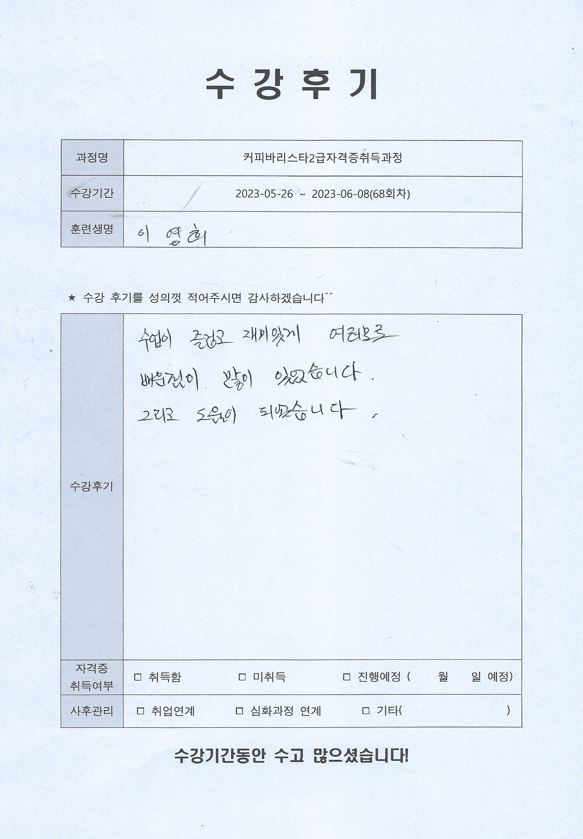 수 강 후 기
과정명 커피바리스타2급자격증취득과정
수강기간 2023-05-26 ~ 2023-06-08(68회차)
훈련생명 이 영희
★ 수강 후기를 성의껏 적어주시면 감사하겠습니다^^
수업이 즐겁고 재미있게 여러모로
배운점이 많이 있었습니다.
그리고 도움이 되었습니다.
수강후기
자격증
취득여부 □ 취득함 □ 미취득 □ 진행예정 ( 월 일 예정)
사후관리 □ 취업연계 □ 심화과정 연계 □ 기타( )
수강기간동안 수고 많으셨습니다!